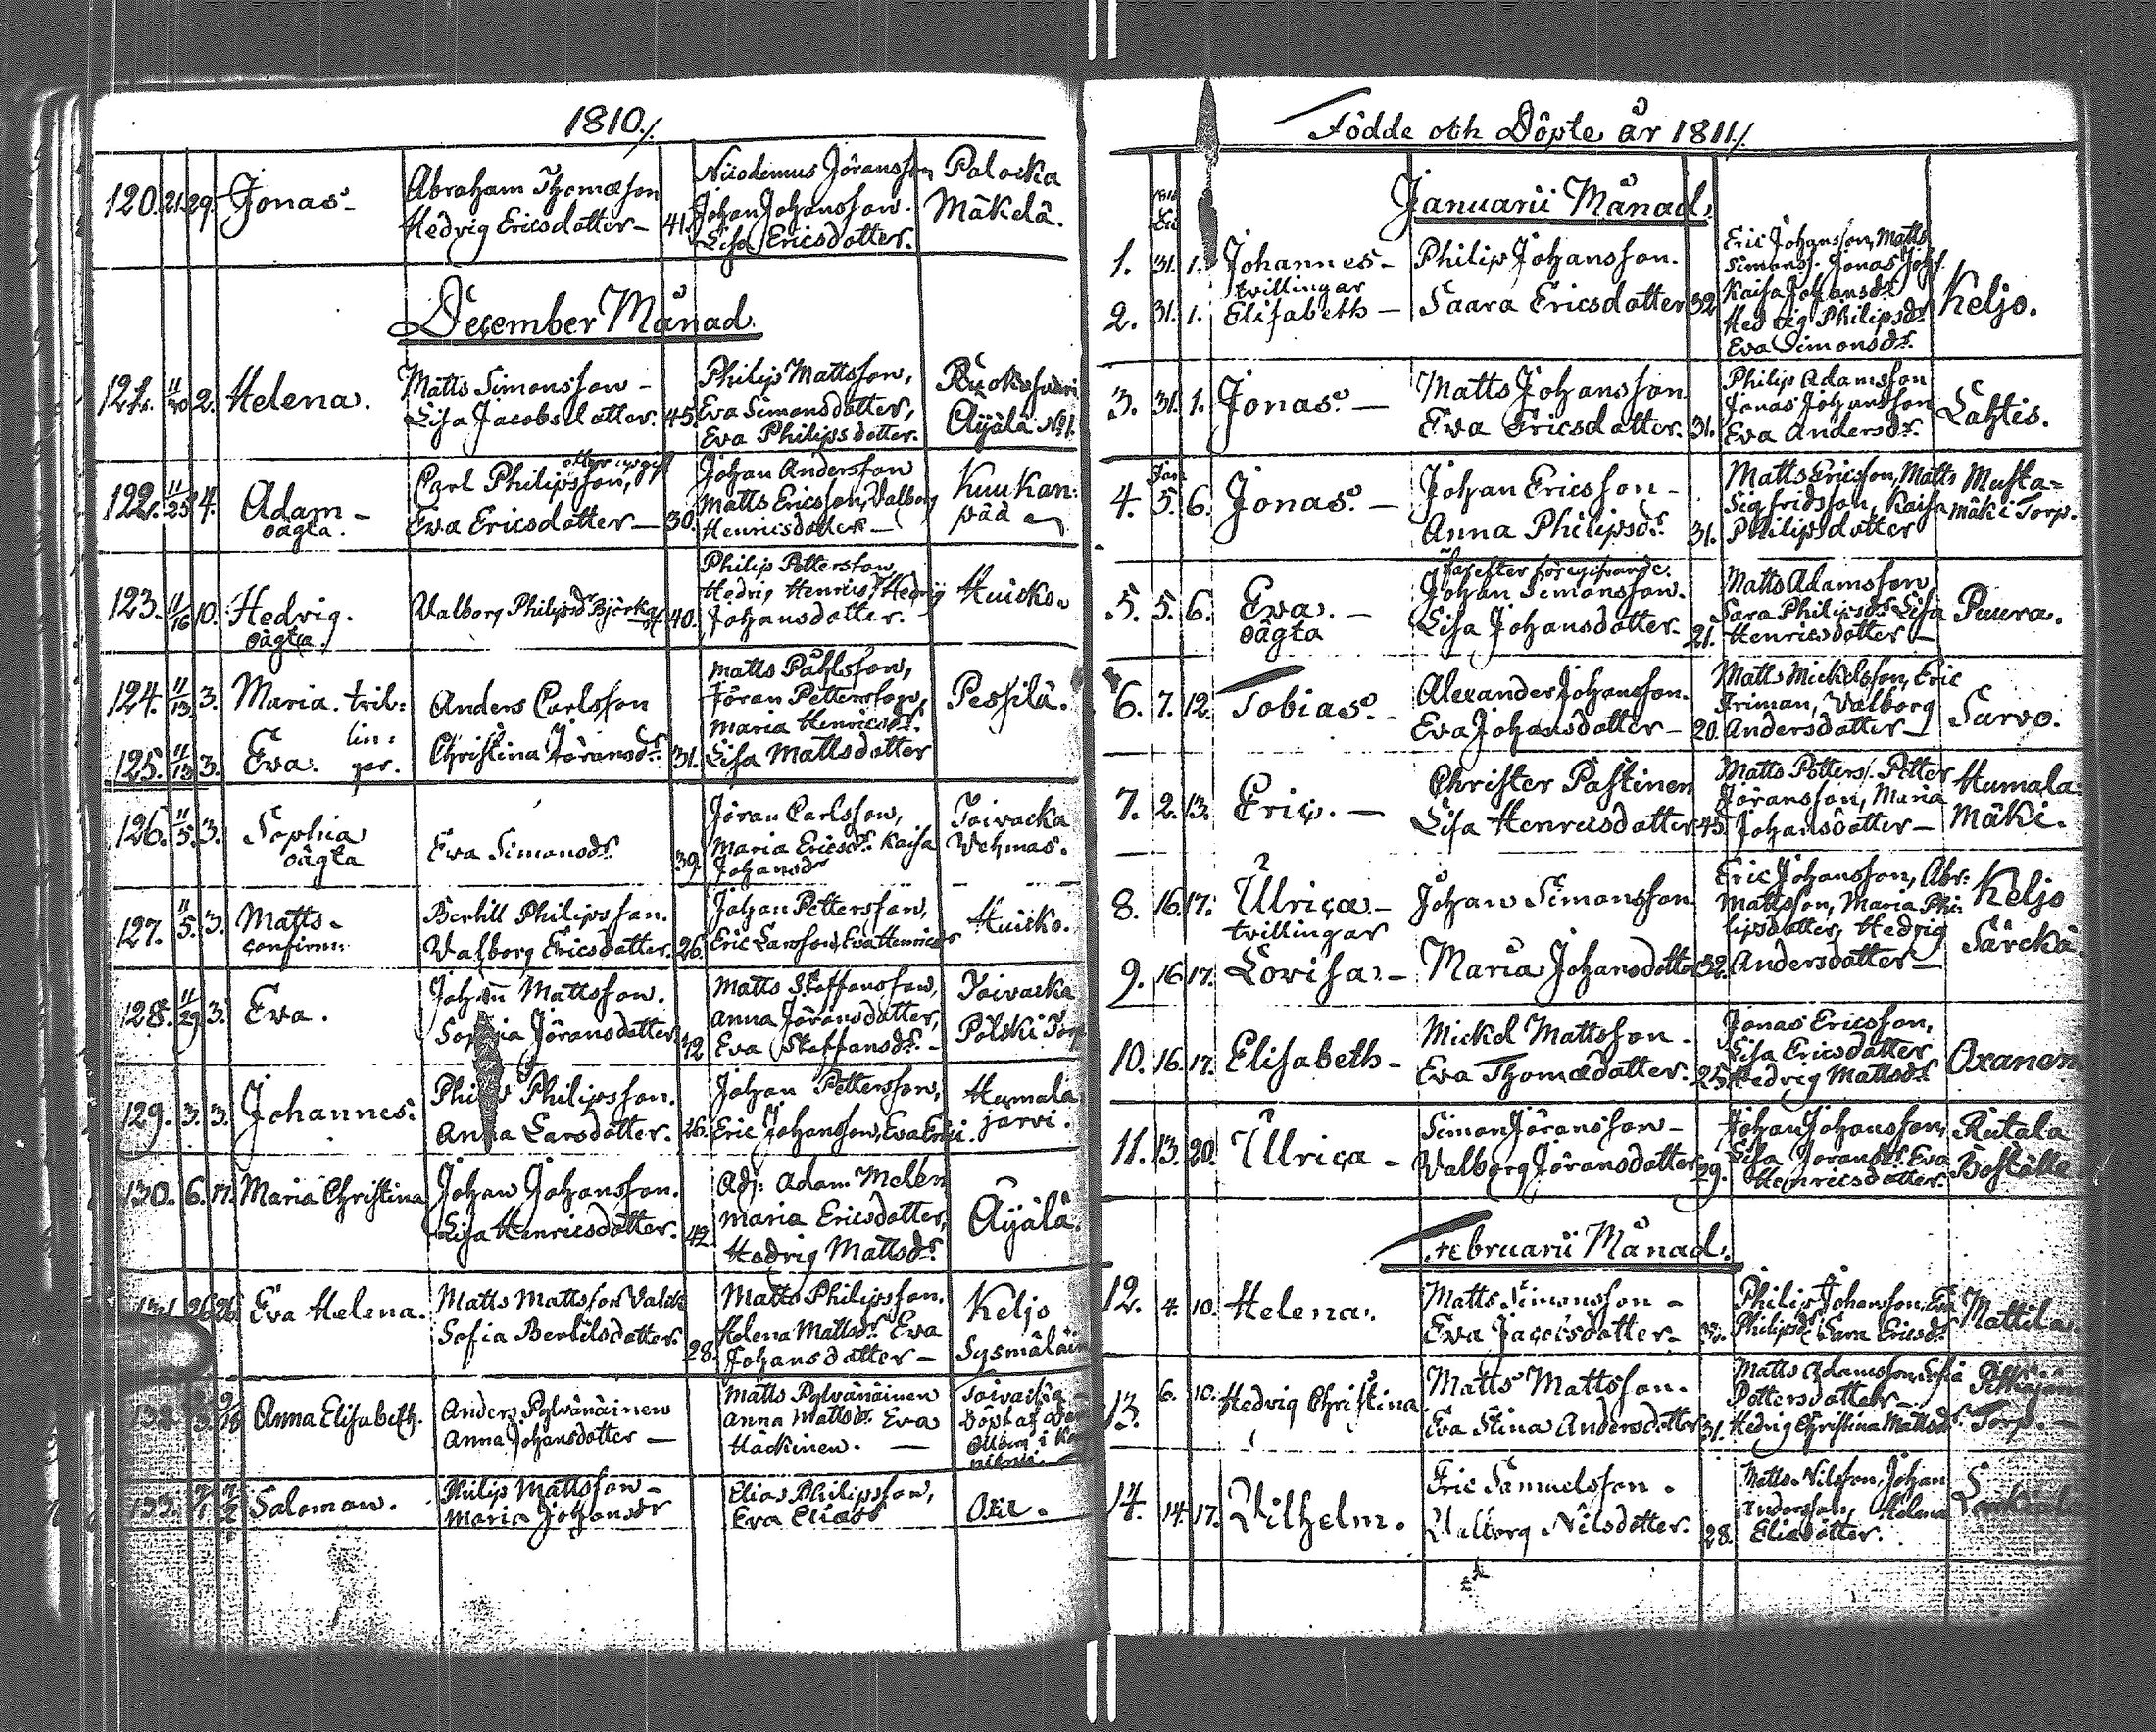 1810./.
120. 21. 29. Jonas- Abraham Thomæson Nicodemus Jöransson Palocka
Hedvig Ericsdotter- 41. Johan Johansson. Mäkelä.
Lisa Ericsdotter.
December Månad.
121. 11/30 2. Helena. Matts Simonsson - Philip Mattsson,
Lisa Jacobsdotter. 45. Eva Simonsdotter, Äÿälä. No 1.
Eva Philipsdotter.
122. 11/25 4. Adam - Carl Philipsson, Johan Andersson Kuukan:
oägta. Eva Ericsdotter- 30. Matts Ericsson, Valborg pää
Henricsdotter-
123. 11/16 10. Hedvig. Valborg Philipsdr 40. Philip Pettersson Huicko.
oägta. Hedvig Henricsdr Hedvig
Johansdotter.
124. 11/13. 3. Maria. tvil: Anders Carlsson Matts Påhlsson, Pessilä.
lin: Jöran Pettersson,
Maria Henricsdr.
125. 11/13 3. Eva. gar. Christina Jöransdr. 31. Lisa Mattsdotter
126. 11/5. 3. Sophia Eva Simonsdr. 39. Jöran Carlsson, Toivacka
oägta Maria Ericsdr. Kaisa Vehmas.
Johansdr
127. 11/5. 3. Matts- Bertill Philipsson. Johan Pettersson, Huicko.
confirm: Valborg Ericsdotter. 26. Eric Larsson, Eva Henricsdr
128. 11/29 3. Eva. Johan Mattsson. Matts Staffansson, Toivacka
Sophia Jöransdotter. 42 Anna Jöransdotter, Pölski Torp
Eva Staffansdr. -
129. 3. 3. Johannes: Philip Philipsson. Johan Pettersson, Humala
Anna Larsdotter. 26. Eric Johansson, Eva Erici. järvi.
130. 6. 17. Maria Christina Johan Johansson. Adj: Adam Melen Äÿälä.
Lisa Henricsdotter. 42. Maria Ericsdotter,
Hedvig Mattsdr.
131. 26 26. Eva Helena. Matts Mattsson Matts Philipsson. Keljo
Sofia Bertilsdotter. 28. Helena Mattsdr. Eva
Johansdotter -
Anna Elisabeth. Anders Pylvänäinen Matts Pylvänäinen Toivacka
Anna Johansdotter - Anna Mattsdr. Eva Döpt af
Häckinen. -
133. Salomon. Philip Mattsson - Elias Philipsson,
Maria Johansdr Eva Eliasd
Födde och Döpte år 1811./.
Januarii Månad.
1. 31. 1. Johannes- Philip Johansson. Eric Johansson, Matts
tvillingar Simonss. Jonas Johs.
Kaisa Johansdr.
2. 31. 1. Elisabeth - Saara Ericsdotter 32 Hedvig Philipsdr. Keljo.
Eva Simonsdr.
3. 31. 1. Jonas. - Matts Johansson Philip Adamsson
Jonas Johansson Lahtis.
Eva Ericsdotter. 31. Eva Andersdr.
4. Jan 5. 6. Jonas. - Johan Ericsson - Matts Ericsson, Matts Musta=
Sigfridsson, Kaisa mäki Torp.
Anna Philipsdr. 31. Philipsdotter
5. 5. 6. Eva. - Johan Simonsson. Matts Adamsson
oägta Lisa Johansdotter. 21. Sara Philipsdr. Lisa Puura.
Henricsdotter -
6. 7. 12. Tobias. - Alexander Johansson. Matts Mickelsson, Eric
Friman, Valborg
Eva Johansdotter - 20. Andersdotter - Survo.
7. 2. 13. Eric. - Christer Pastinen Matts Petterss. Petter Humala
Jöransson, Maria
Lisa Henricsdotter 45. Johansdotter - mäki.
8. 16. 17. Ulrica - Johan Simonsson. Eric Johansson, Abr: Keljo
tvillingar Mattsson, Maria Phi:
lipsdotter, Hedvig Särckä.
9. 16 17. Lovisa. - Maria Johansdotter 32. Andersdotter -
10. 16. 17. Elisabeth - Mickel Mattsson - Jonas Ericsson, Oxanen
Eva Thomædotter. 25. Lisa Ericsdotter
Hedvig Mattsdr.
11. 13. 20. Ulrica - Simon Jöransson - Johan Johansson, Rutala
Valborg Jöransdotter 29. Lisa Joransdr. Eva Boställe
Henricsdotter.
Februarii Månad.
12. 4. 10. Helena. Matts Simonsson - Philip Johansson, Eva Mattila.
Eva Jacobsdotter - Philipsdr. Sara Ericsdr.
13. 6. 10. Hedvig Christina Matts Mattsson. Matts Adamsson, Sofia
Pettersdotter -
Eva Stina Andersdotter 31. Hedvig Christina Mattsdr. Torp. -
14. 14. 17. Vilhelm. Eric Samuelsson. Matts Nilsson, Johan
Andersson, Helena
Valborg Nilsdotter. 28. Eliædotter.